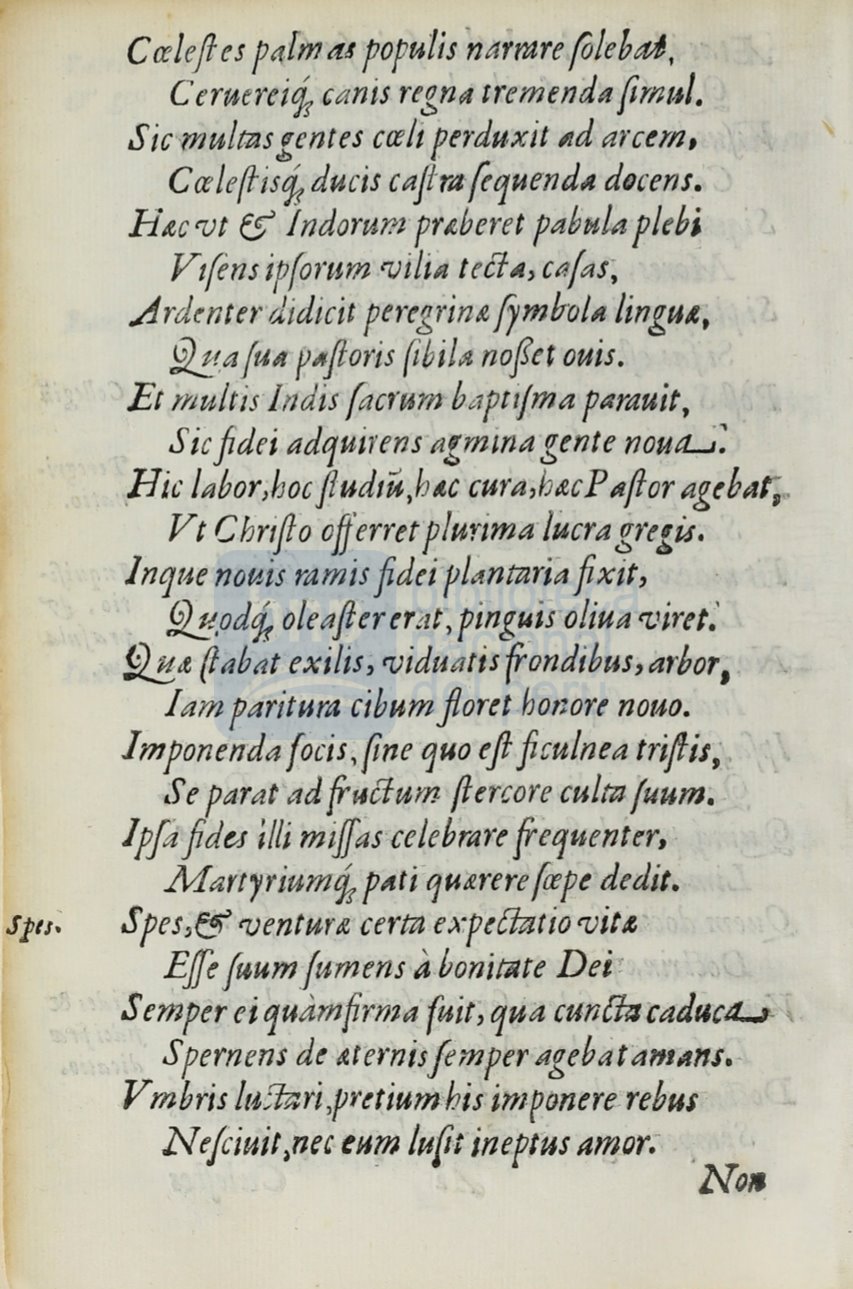 Cœleſtes palmas populis narrare ſolebat,
Ceruereiq́; canis regna tremenda ſimul.
Sic multas gentes cœli perduxit ad arcem,
Cœleſtisq́; ducis caſtra ſequenda docens.
Hæc vt & Indorum præberet pabula plebi
Viſens ipſorum vilia tecta, caſas,
Ardenter didicit peregrinæ ſymbola linguæ,
Qua ſua paſtoris ſibila noßet ouis.
Et multis Indis ſacrum baptiſma parauit,
Sic fidei adquirens agmina gente noua.
Hic labor, hoc ſtudiũ, hæc cura, hæc Paſtor agebat,
Vt Chriſto offerret plurima lucra gregis.
Inque nouis ramis fidei plantaria fixit,
Quodq́; oleaſter erat, pinguis oliua viret.
Quæ ſtabat exilis, viduatis frondibus, arbor,
Iam paritura cibum floret honore nouo.
Imponenda focis, ſine quo eſt ficulnea triſtis,
Se parat ad fructum ſtercore culta ſuum.
Ipſa fides illi miſſas celebrare frequenter,
Martyriumq́; pati quærere ſœpe dedit.
Spes. Spes, & venturæ certa expectatio vitæ
Eſſe ſuum ſumens à bonitate Dei
Semper ei quàm firma fuit, qua cuncta caduca
Spernens de æternis ſemper agebat amans.
Vmbris luctari, pretium his imponere rebus
Neſciuit, nec eum luſit ineptus amor.
Non